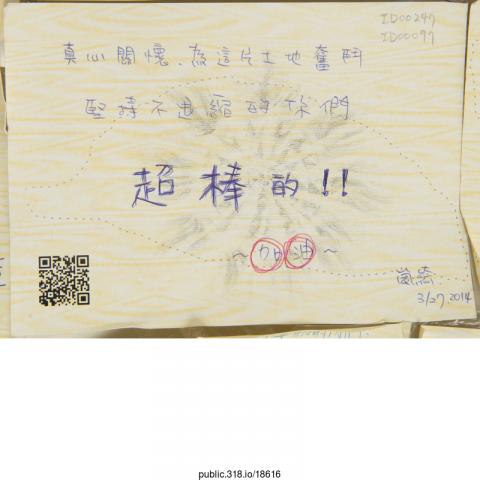 ID00247
ID00097
真心關懷、為這片土地奮鬥
堅持不退縮的你們
超棒的!!
~加油~
3/27 2014
public.318.io/18616